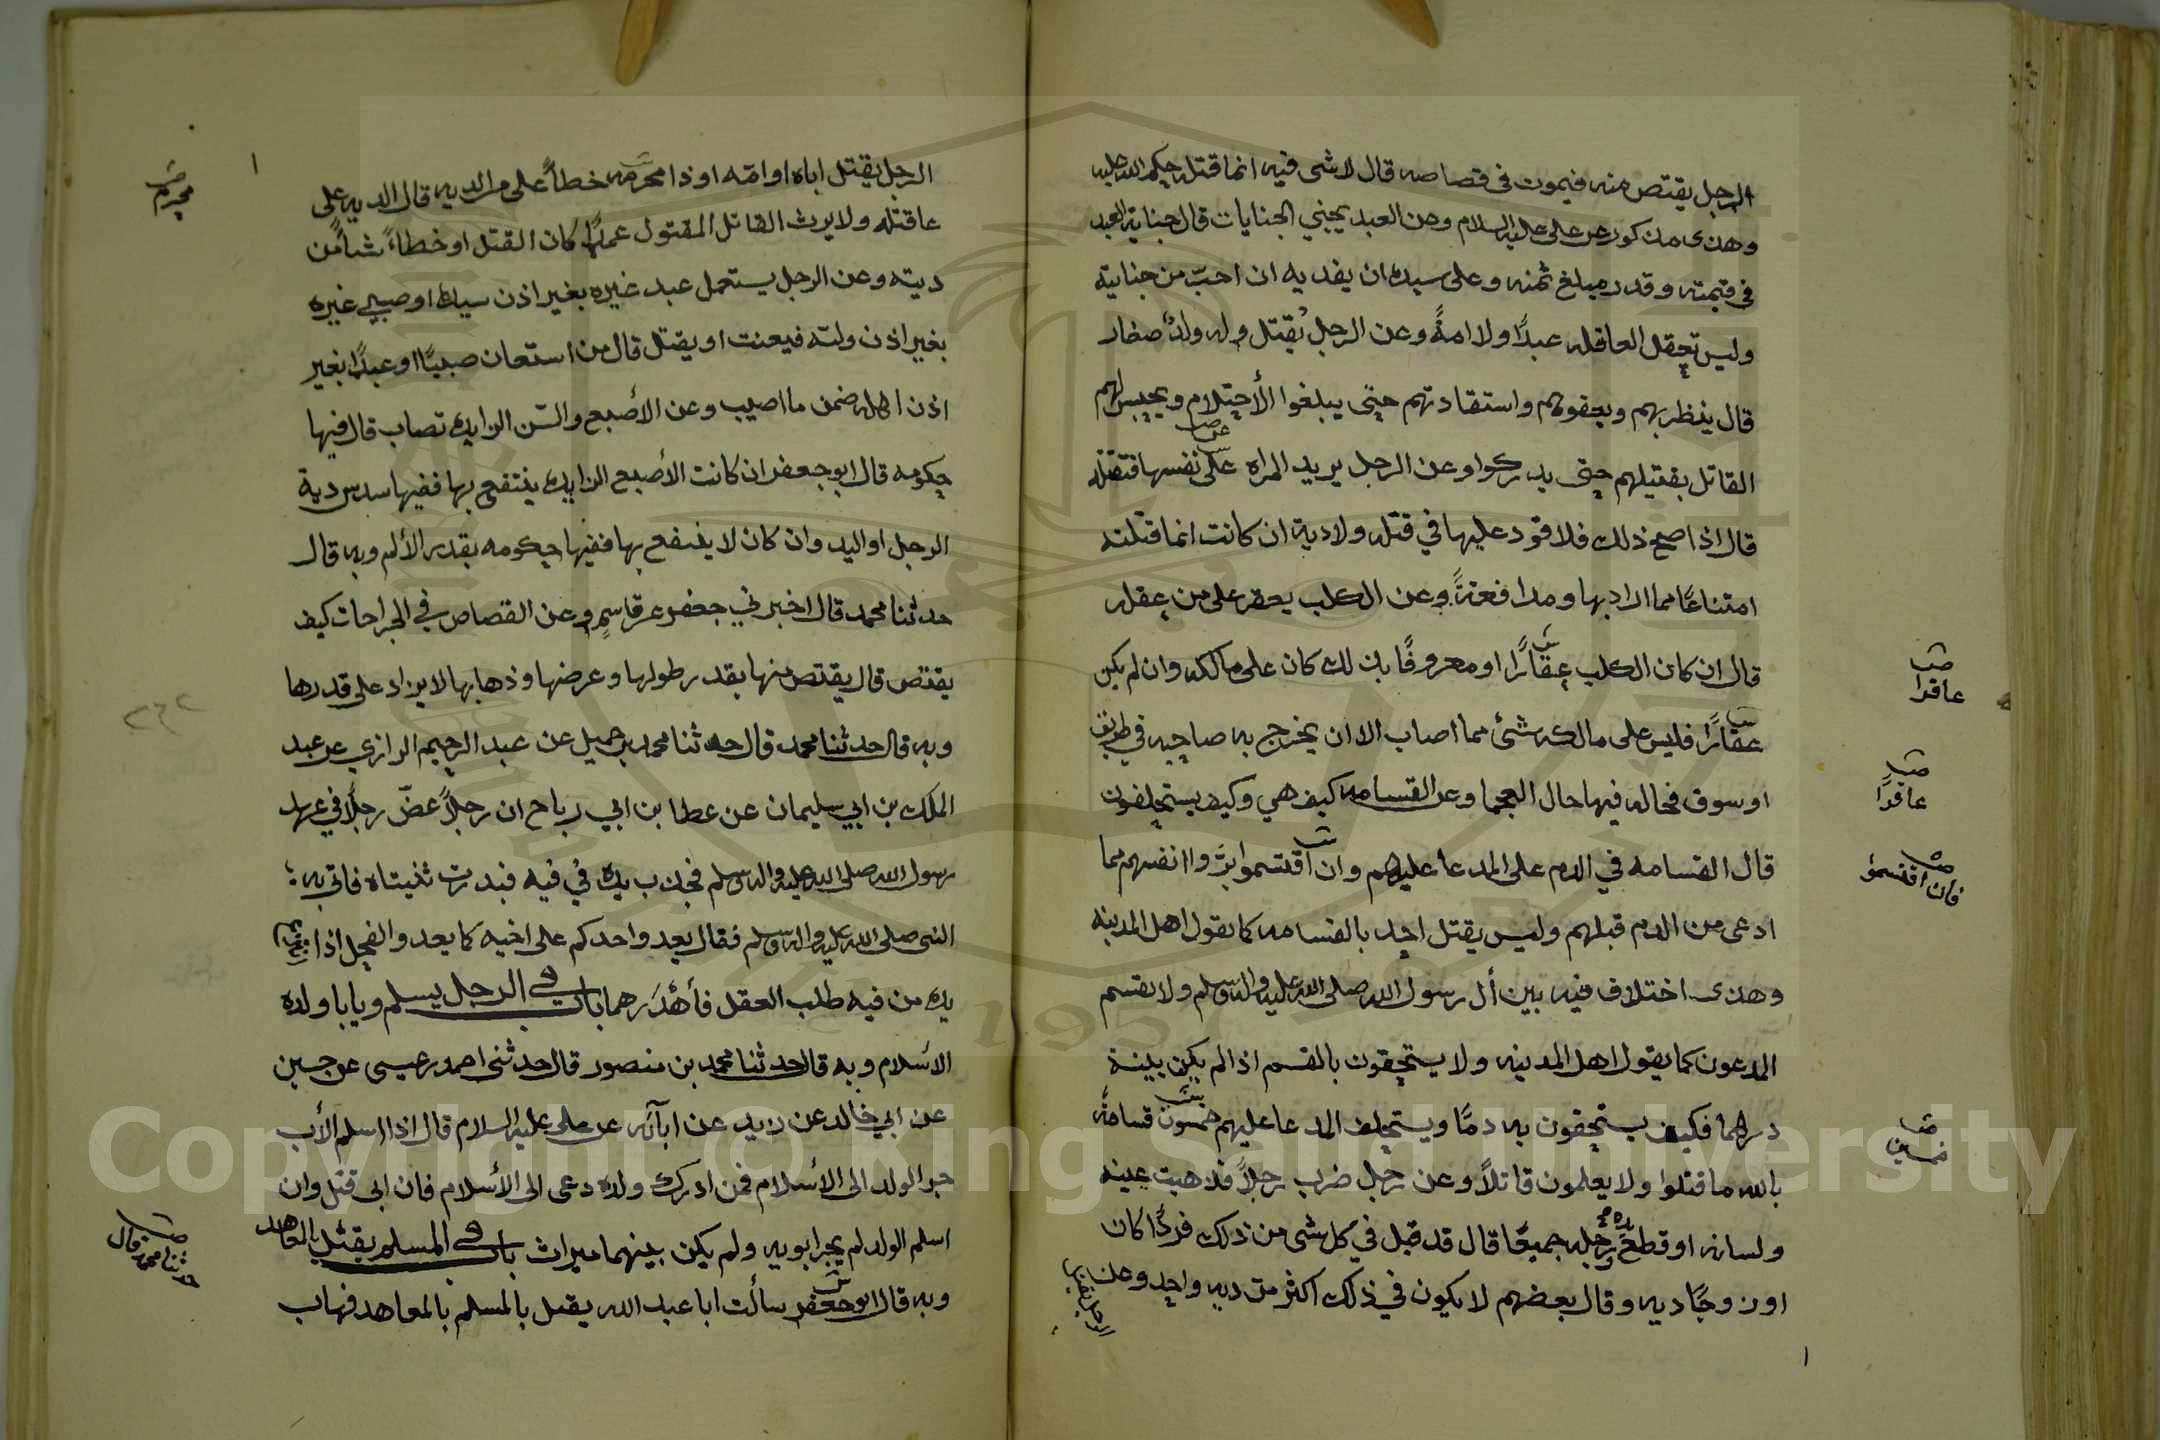 الرجل يقتص منه فيموت في قصاصه قال لا شى فيه انما قتله حكم الله عليه
وهذى مذكور عن على عليه السلام وعن العبد يجني الجنايات قال جناية العبد
في قيمته وقدر مبلغ ثمنه وعلى سيده ان يفديه ان احبّ من جناية
وليس تعقل العاقله عبدًا ولا امةً وعن الرجل يُقتل وله ولدٌ صغار
قال ينظر بهم وبعفوهم واستقادتهم حتى يبلغوا الأحتلام ويحبس لهم
القاتل بقتيلهم حتى يدركوا وعن الرجل يريد المراه على نفسها فتقتله
عن صـ
قال اذا صح ذلك فلا قود عليها في قتله ولا دية ان كانت انما قتلته
امتناعًا مما اراد بها ومدافعةً وعن الكلب يعقر على من عقله
قال ان كان الكلب عقارًا او معروفًا بذلك كان على مالكه وان لم يكن
صـ عاقرا
عقارًا فليس على مالكه شئ مما اصاب الا ان يخرج به صاحبه في طريق
صـ عاقرًا
او سوق فحاله فيها حال العجما وعن القسامه كيف هي وكيف يستحلفون
قال القسامه في الدم على المدعا عليهم وان اقتسموا برّوا انفسهم مما
صـ فان اقتسموا
ادعى من الدم قبلهم وليس يقتل احد بالقسامه كما يقول اهل المدينه
وهذى اختلاف فيه بين أل رسول الله صلى الله عليه واله وسلم ولا يقسم
المدعون كما يقول اهل المدينه ولا يستحقون بالقسم اذا لم يكن بينة
درهما فكيف يستحقون به دمًا ويستحلف المدعا عليهم خمسون قسامةً
صـ خمسين
بالله ما قتلوا ولا يعلمون قاتلاً وعن رجل ضرب رجلاً فذهبت عينه
ولسانه او قطع يده رجله جميعًا قال قد قيل في كل شى من ذلك فردًا كان
او زوجًا ديه وقال بعضهم لا يكون في ذلك اكثر من ديه واحد وعن
الرجل يقتل
الرجل يقتل اباه او امّه او ذا محرمه خطأً على من الديه قال الديه على
صـ محرم
عاقتله ولا يرث القاتل المقتول عمدًا كان القتل او خطاءً شأ من
ديته وعن الرجل يستعمل عبد غيره بغير اذن سيده او صبي غيره
بغير اذن وليّه فيعنت او يقتل قال من استعان صبيًا او عبدًا بغير
اذن اهله ضمن ما اصيب وعن الأصبع والسّن الزايده تصاب قال فيها
حكومه قال ابو جعفر ان كانت الأصبع الزايده ينتفع بها ففيها سدس دية
الرجل او اليد وان كان لا ينتفع بها ففيها حكومه بقدر الألم وبه قال
حدثنا محمد قال اخبرني جعفر عن قاسم وعن القصاص في الجراحات كيف
يقتص قال يقتص منها بقدر طولها وعرضها وذهابها لا يزاد على قدرها
وبه قال حدثنا محمد قال حدثنا محمد بن جميل عن عبد الرحيم الرازي عن عبد
الملك بن ابي سليمان عن عطا بن ابي رباح ان رجلاً عضّ رجلاً في عهد
رسول الله صلى الله عليه واله وسلم فجذب يده في فيه فبدرت ثنيتاه فاتى به
النبى صلى الله عليه واله وسلم فقال يعد واحدكم على اخيه كما يعد والفحل اذا
يده من فيه طلب العقل فأهْدَرهما باب في الرجل يسلم ويابا ولده
الاسلام وبه قال حدثنا محمد بن منصور قال حدثنى احمد بن عيسى عن حسين
عن ابي خالد عن زيد عن ابآئه عن على عليه السلام قال اذا اسلم الأب
جر الولد الى الأسلام فمن ادرك ولده دعى الى الأسلام فان ابى قتل وان
اسلم الولد لم يجر ابويه ولم يكن بينهما ميراث باب في المسلم يقتل بالمعاهد
وبه قال ابو جعفر سألت ابا عبد الله يقتل بالمسلم بالمعاهد فهاب
صـ حدثنا محمد قال
٢٣٢
Copyright © King Saud University
1957